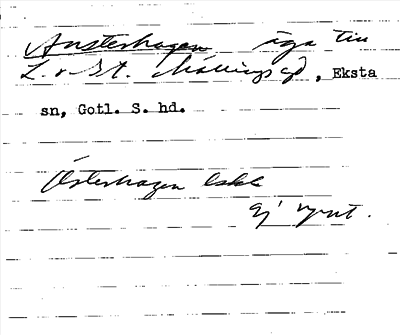 Austerhagen äga till
L. o St. Mällings gd, Eksta
sn, Gotl. S. hd.
Österhagen
ej